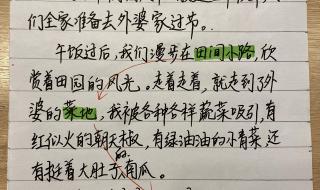 们全家准备去外婆家过节。
午饭过后,我们漫步在田间小路,欣
赏着田园的风光。走着走着,就走到了外
婆的菜地,我被各种各样蔬菜吸引,有
红似火的朝天椒,有绿油油的小青菜,还
有挺着大肚子的南瓜。